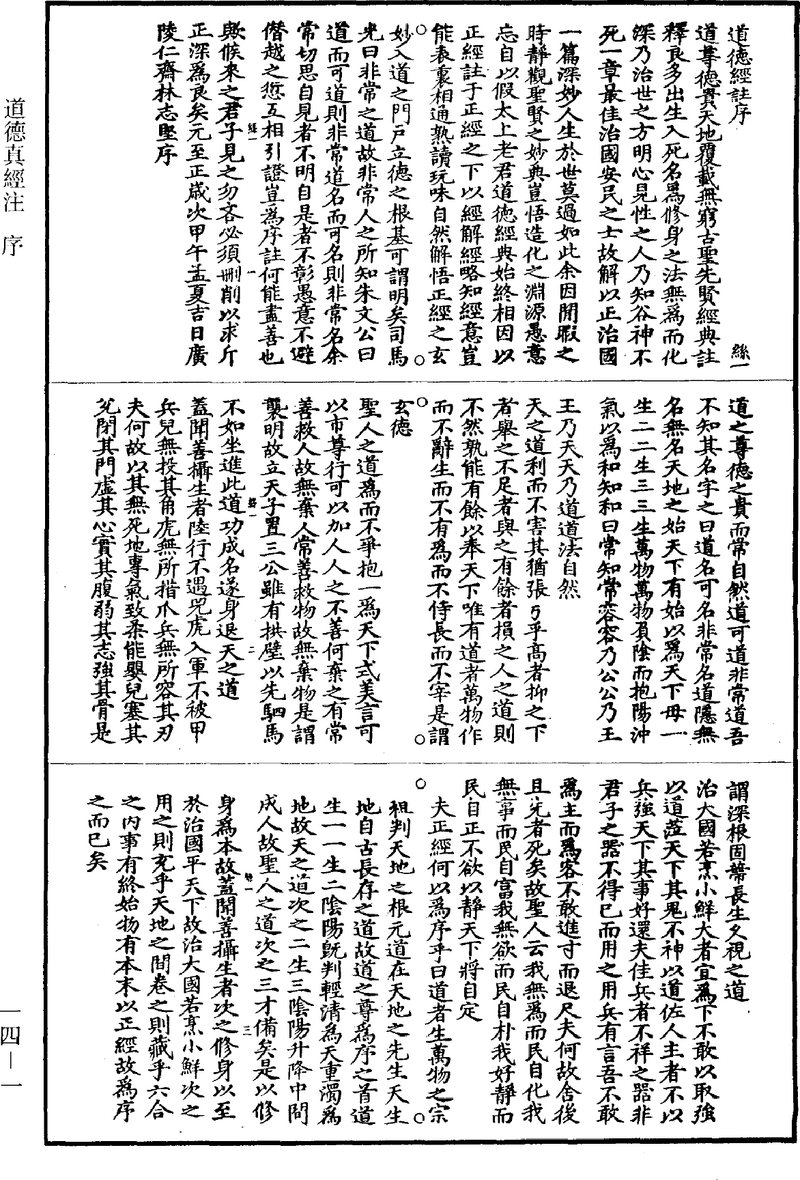 道德經註序
道尊德貴天地覆載無窮古聖先賢經典註
絲一
釋良多出生入死名爲修身之法無爲而化
深乃治世之方明心見性之人乃知谷神不
死一章最佳治國安民之士故解以正治國
一篇深妙人生於世莫過如此余因閒暇之
時靜觀聖賢之妙典豈悟造化之淵源愚意
忘自以假太上老君道德經典始終相因以
正經註于正經之下以經解經略知經意豈
能表裏相通熟讀玩味自然解悟正經之玄
妙入道之門戶立德之根基可謂明矣司馬
光曰非常之道故非常人之所知朱文公曰
道而可道則非常道名而可名則非常名余
常切思自見者不明自是者不彰愚意不避
僭越之愆互相引證豈爲序註何能盡善也
歟候來之君子見之勿吝必須刪削以求斤
正深爲良矣元至正歲次甲午孟夏吉日廣
陵仁齋林志堅序
道之尊德之貴而常自然道可道非常道吾
不知其名字之曰道名可名非常名道隱無
名無名天地之始天下有始以爲天下母一
生二二生三三生萬物萬物負陰而抱陽沖
氣以爲和知和曰常知常容容乃公公乃王
王乃天天乃道道法自然
天之道利而不害其猶張弓乎高者抑之下
者舉之不足者與之有餘者損之人之道則
不然孰能有餘以奉天下唯有道者萬物作
而不辭生而不有爲而不恃長而不宰是謂
玄德
聖人之道爲而不爭抱一爲天下式美言可
以市尊行可以加人人之不善何棄之有常
善救人故無棄人常善救物故無棄物是謂
襲明故立天子置三公雖有拱璧以先駟馬
不如坐進此道功成名遂身退天之道
蓋聞善攝生者陸行不遇兕虎入軍不被甲
兵兕無投其角虎無所措爪兵無所容其刃
夫何故以其無死地專氣致柔能嬰兒塞其
兌閉其門虛其心實其腹弱其志強其骨是
謂深根固蔕長生久視之道
治大國若烹小鮮大者宜爲下不敢以取強
以道莅天下其鬼不神以道佐人主者不以
兵強天下其事好還夫佳兵者不祥之器非
君子之器不得已而用之用兵有言吾不敢
爲主而爲客不敢進寸而退尺夫何故舍後
且先者死矣故聖人云我無爲而民自化我
無事而民自富我無欲而民自朴我好靜而
民自正不欲以靜天下將自定
夫正經何以爲序乎曰道者生萬物之宗
祖判天地之根元道在天地之先生天生
地自古長存之道故道之尊爲序之首道
生一一生二陰陽旣判輕清爲天重濁爲
地故天之道次之二生三陰陽升降中間
成人故聖人之道次之三才備矣是以修
身爲本故蓋聞善攝生者次之修身以至
於治國平天下故治大國若烹小鮮次之
用之則充乎天地之間卷之則藏乎六合
之內事有終始物有本末以正經故爲序
之而已矣
道德真經注 序
一四—一